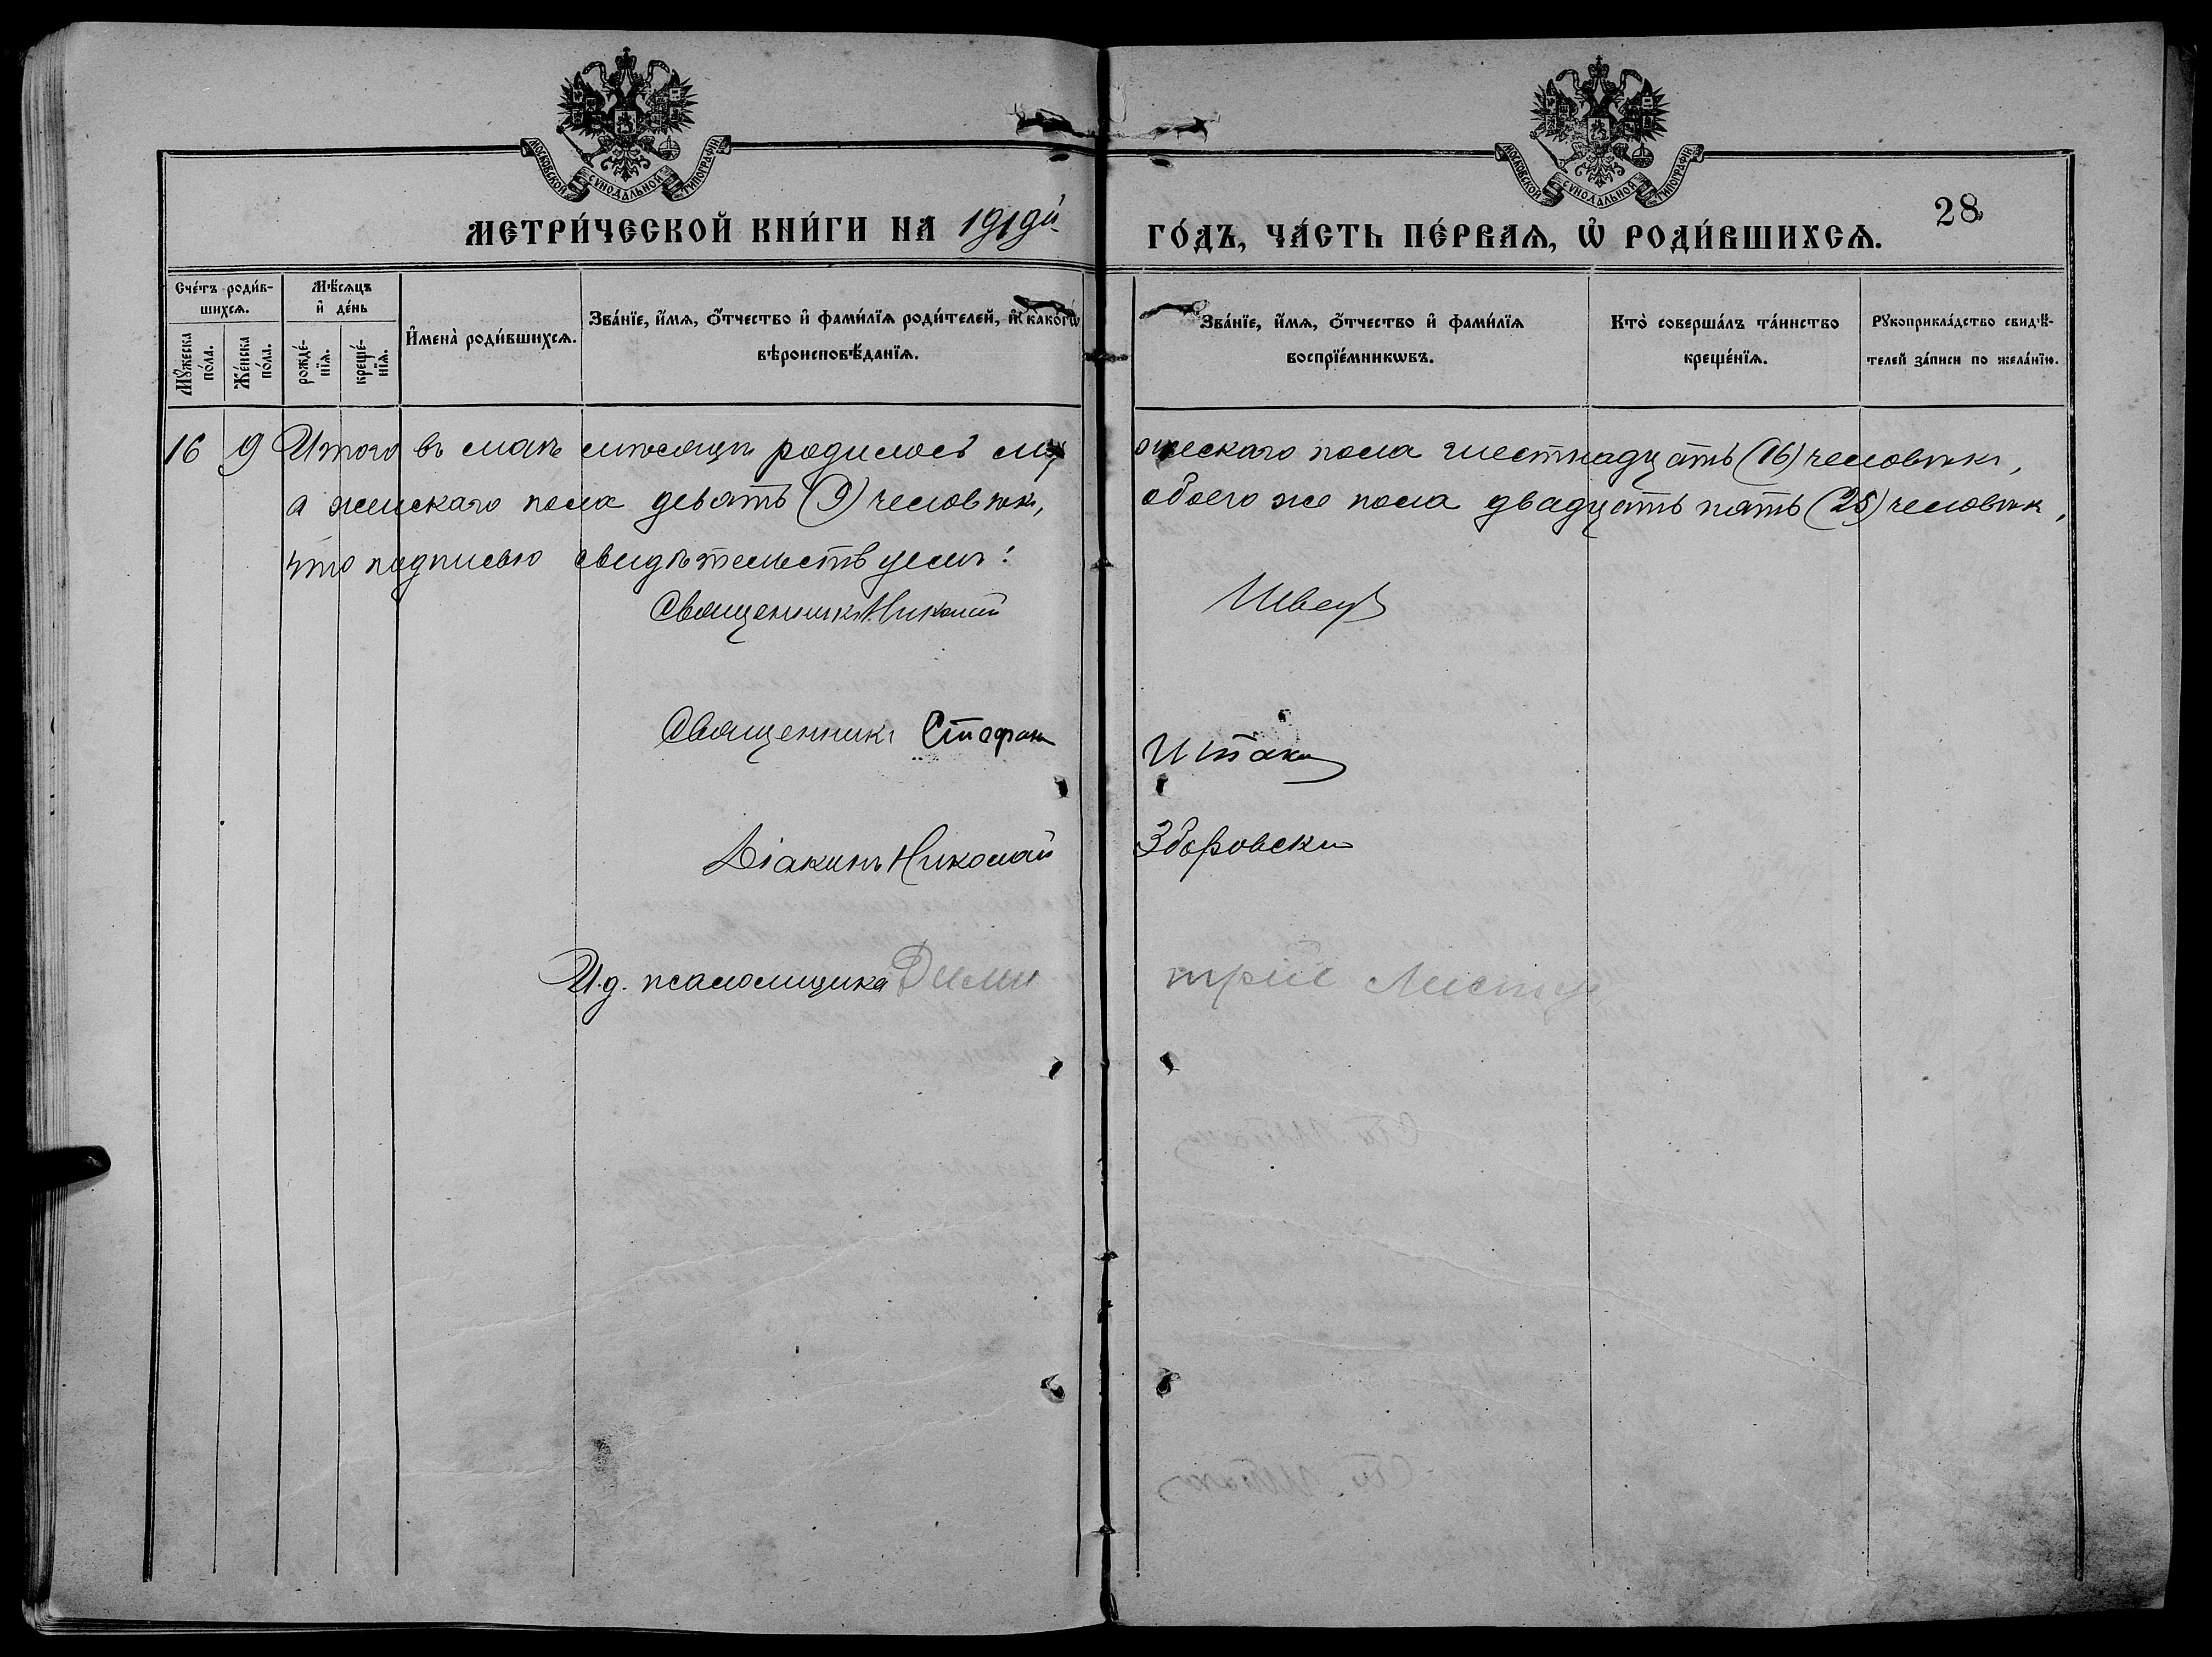 МОСКОВСКОЙ СѴНОДАЛЬНОЙ ТИПОГРАФІИ
МОСКОВСКОЙ СѴНОДАЛЬНОЙ ТИПОГРАФІИ
28
МЕТРИ́ЧЕСКОЙ КНИ́ГИ НА 1919й ГО́ДЪ, ЧА́СТЬ ПЕ́РВАѦ, Ѡ҆ РОДИ́ВШИХСѦ.
Сче́тъ роди́в-
шихсѧ.
Мꙋ́жеска по́ла.
Же́нска по́ла.
Мѣ́сѧцъ
и҆ де́нь
рожде́-
нїѧ.
креще́-
нїѧ.
И҆мена̀ роди́вшихсѧ.
Зва́нїе, и҆́мѧ, ѻ҆́тчество и҆ фами́лїѧ роди́телей, и҆ како́гѡ
вѣроисповѣ́данїѧ.
Зва́нїе, и҆́мѧ, ѻ҆́тчество и҆ фами́лїѧ
воспрїе́мникѡвъ.
Кто̀ соверша́лъ та́инство
креще́нїѧ.
Рꙋкоприкла́дство свидѣ́-
телей за́писи по жела́нїю.
16 9 Итого въ маѣ мѣсяцѣ родилось мужескаго пола шестнадцать (16) человѣкъ,
а женскаго пола девять (9) человѣкъ, обоего же пола двадцать пять (25) человѣк,
что подписью свидѣтельствуемъ:
Священникъ Николай Швецъ
Священникъ Стефан Штаки
Діаконъ Николай Зборовски
И.д. псаломщика Дими трій